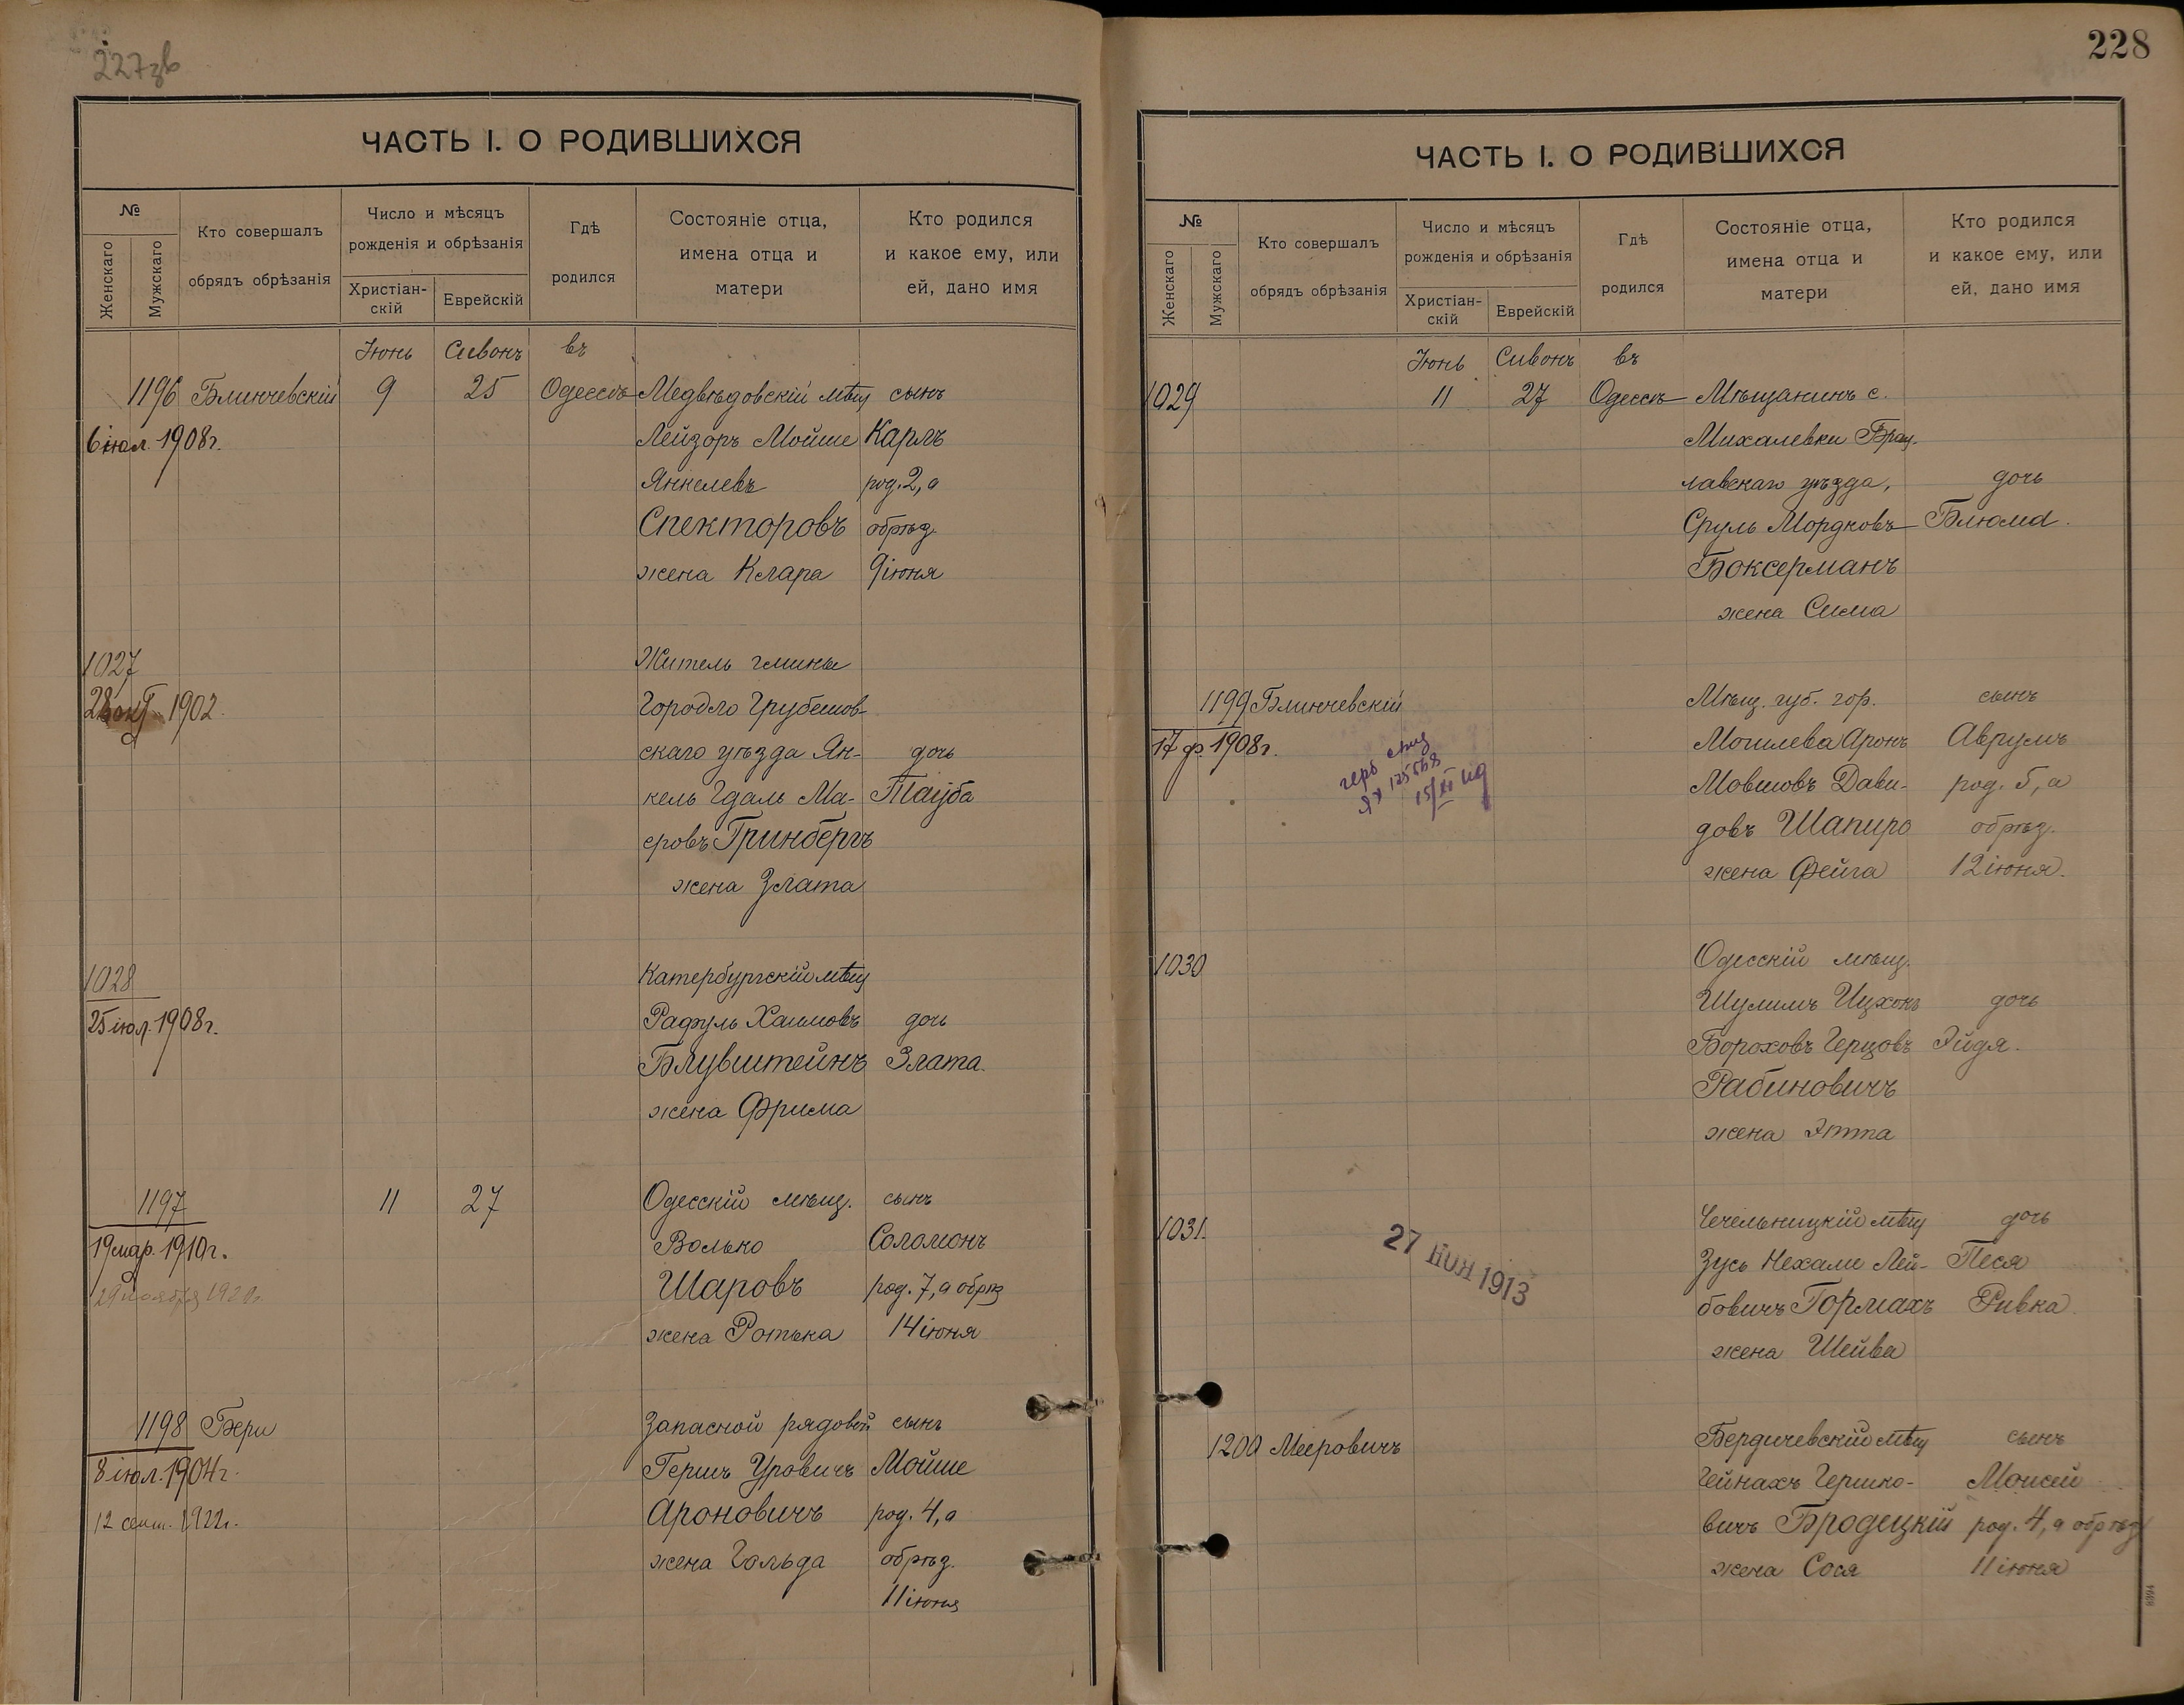 227зв
ЧАСТЬ I. О РОДИВШИХСЯ
№
Женскаго
Мужскаго
Кто совершалъ
обрядъ обрѣзанія
Число и мѣсяцъ
рожденія и обрѣзанія
Христіан-
скій
Еврейскій
Гдѣ
родился
Состояніе отца,
имена отца и
матери
Кто родился
и какое ему, или
ей, дано имя
Іюнь Сивонъ въ
1196 Блинчевскій 9 25 Одессѣ Медвѣдовскій мѣщ сынъ
6 іюл. 1908г. Лейзоръ Мойше Карлъ
Янкелевъ род. 2, а
Спекторовъ обрѣз.
жена Клара 9 іюня
1027 Житель гмины
1902 Городло Грубешов-
скаго уѣзда Ян- дочь
кель Гдаль Ма- Тауба
еровъ Гринбергъ
жена Злата
1028 Катербургскій мѣщ
25 іюл. 1908г. Рафуль Хаимовъ дочь
Блувштейнъ Злата.
жена Фрима
1197 11 27 Одесскій мѣщ. сынъ
19 мар. 1910г. Волько Соломонъ
29 ноября 192 Шаровъ род. 7, а обрѣз
жена Ротька 14 іюня
1198 Бери Запасной рядовой сынъ
8 іюл. 1904г. Гершъ Уровичъ Мойше
12 сент. 1922г. Ароновичъ род. 4, а
жена Гольда обрѣз.
11 іюня
228
ЧАСТЬ I. О РОДИВШИХСЯ
№
Женскаго
Мужскаго
Кто совершалъ
обрядъ обрѣзанія
Число и мѣсяцъ
рожденія и обрѣзанія
Христіан-
скій
Еврейскій
Гдѣ
родился
Состояніе отца,
имена отца и
матери
Кто родился
и какое ему, или
ей, дано имя
Іюнь Сивонъ въ
1029 11 27 Одессѣ Мѣщанинъ с.
Михалевки Брац-
лавскаго уѣзда, дочь
Сруль Мордковъ Блюма.
Боксерманъ
жена Сима
1199 Блинчевскій Мѣщ. губ. гор. сынъ
17 ф. 1908г. Могилева Аронъ Аврумъ
Мовшовъ Дави- род. 5, а
довъ Шапиро обрѣз.
жена Фейга 12 іюня.
1030 Одесскій мѣщ.
Шулимъ Ицхонъ дочь
Бороховъ Герцовъ Эйдя.
Рабиновичъ
жена Этта
1031. Чечельницкій мѣщ дочь
27 НОЯ 1913 Зусь Нехаме Лей- Песя
бовичъ Гормахъ Ривка.
жена Шейва
1200 Мееровичъ Бердичевскій мѣщ сынъ
Гейнахъ Гершко- Моисей
вичъ Бродецкій род. 4, а обрѣз
жена Сося 11 іюня
8394